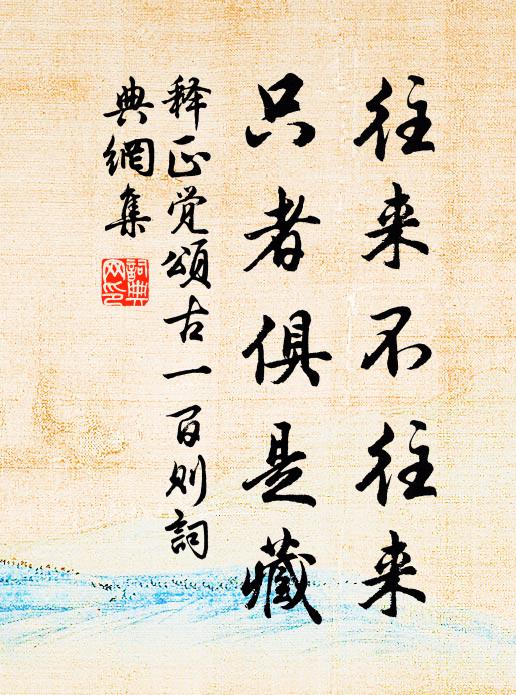 往来不往来
只者俱是藏
释正觉颂古一百则詞
典網集
詞典网印